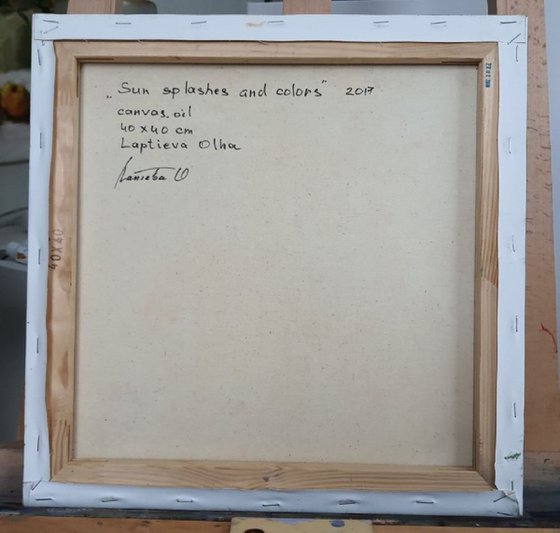 „Sun splashes and colors" 2017
canvas. oil
40 x 40 cm
Laptieva Olha
Лаптєва О
40X40